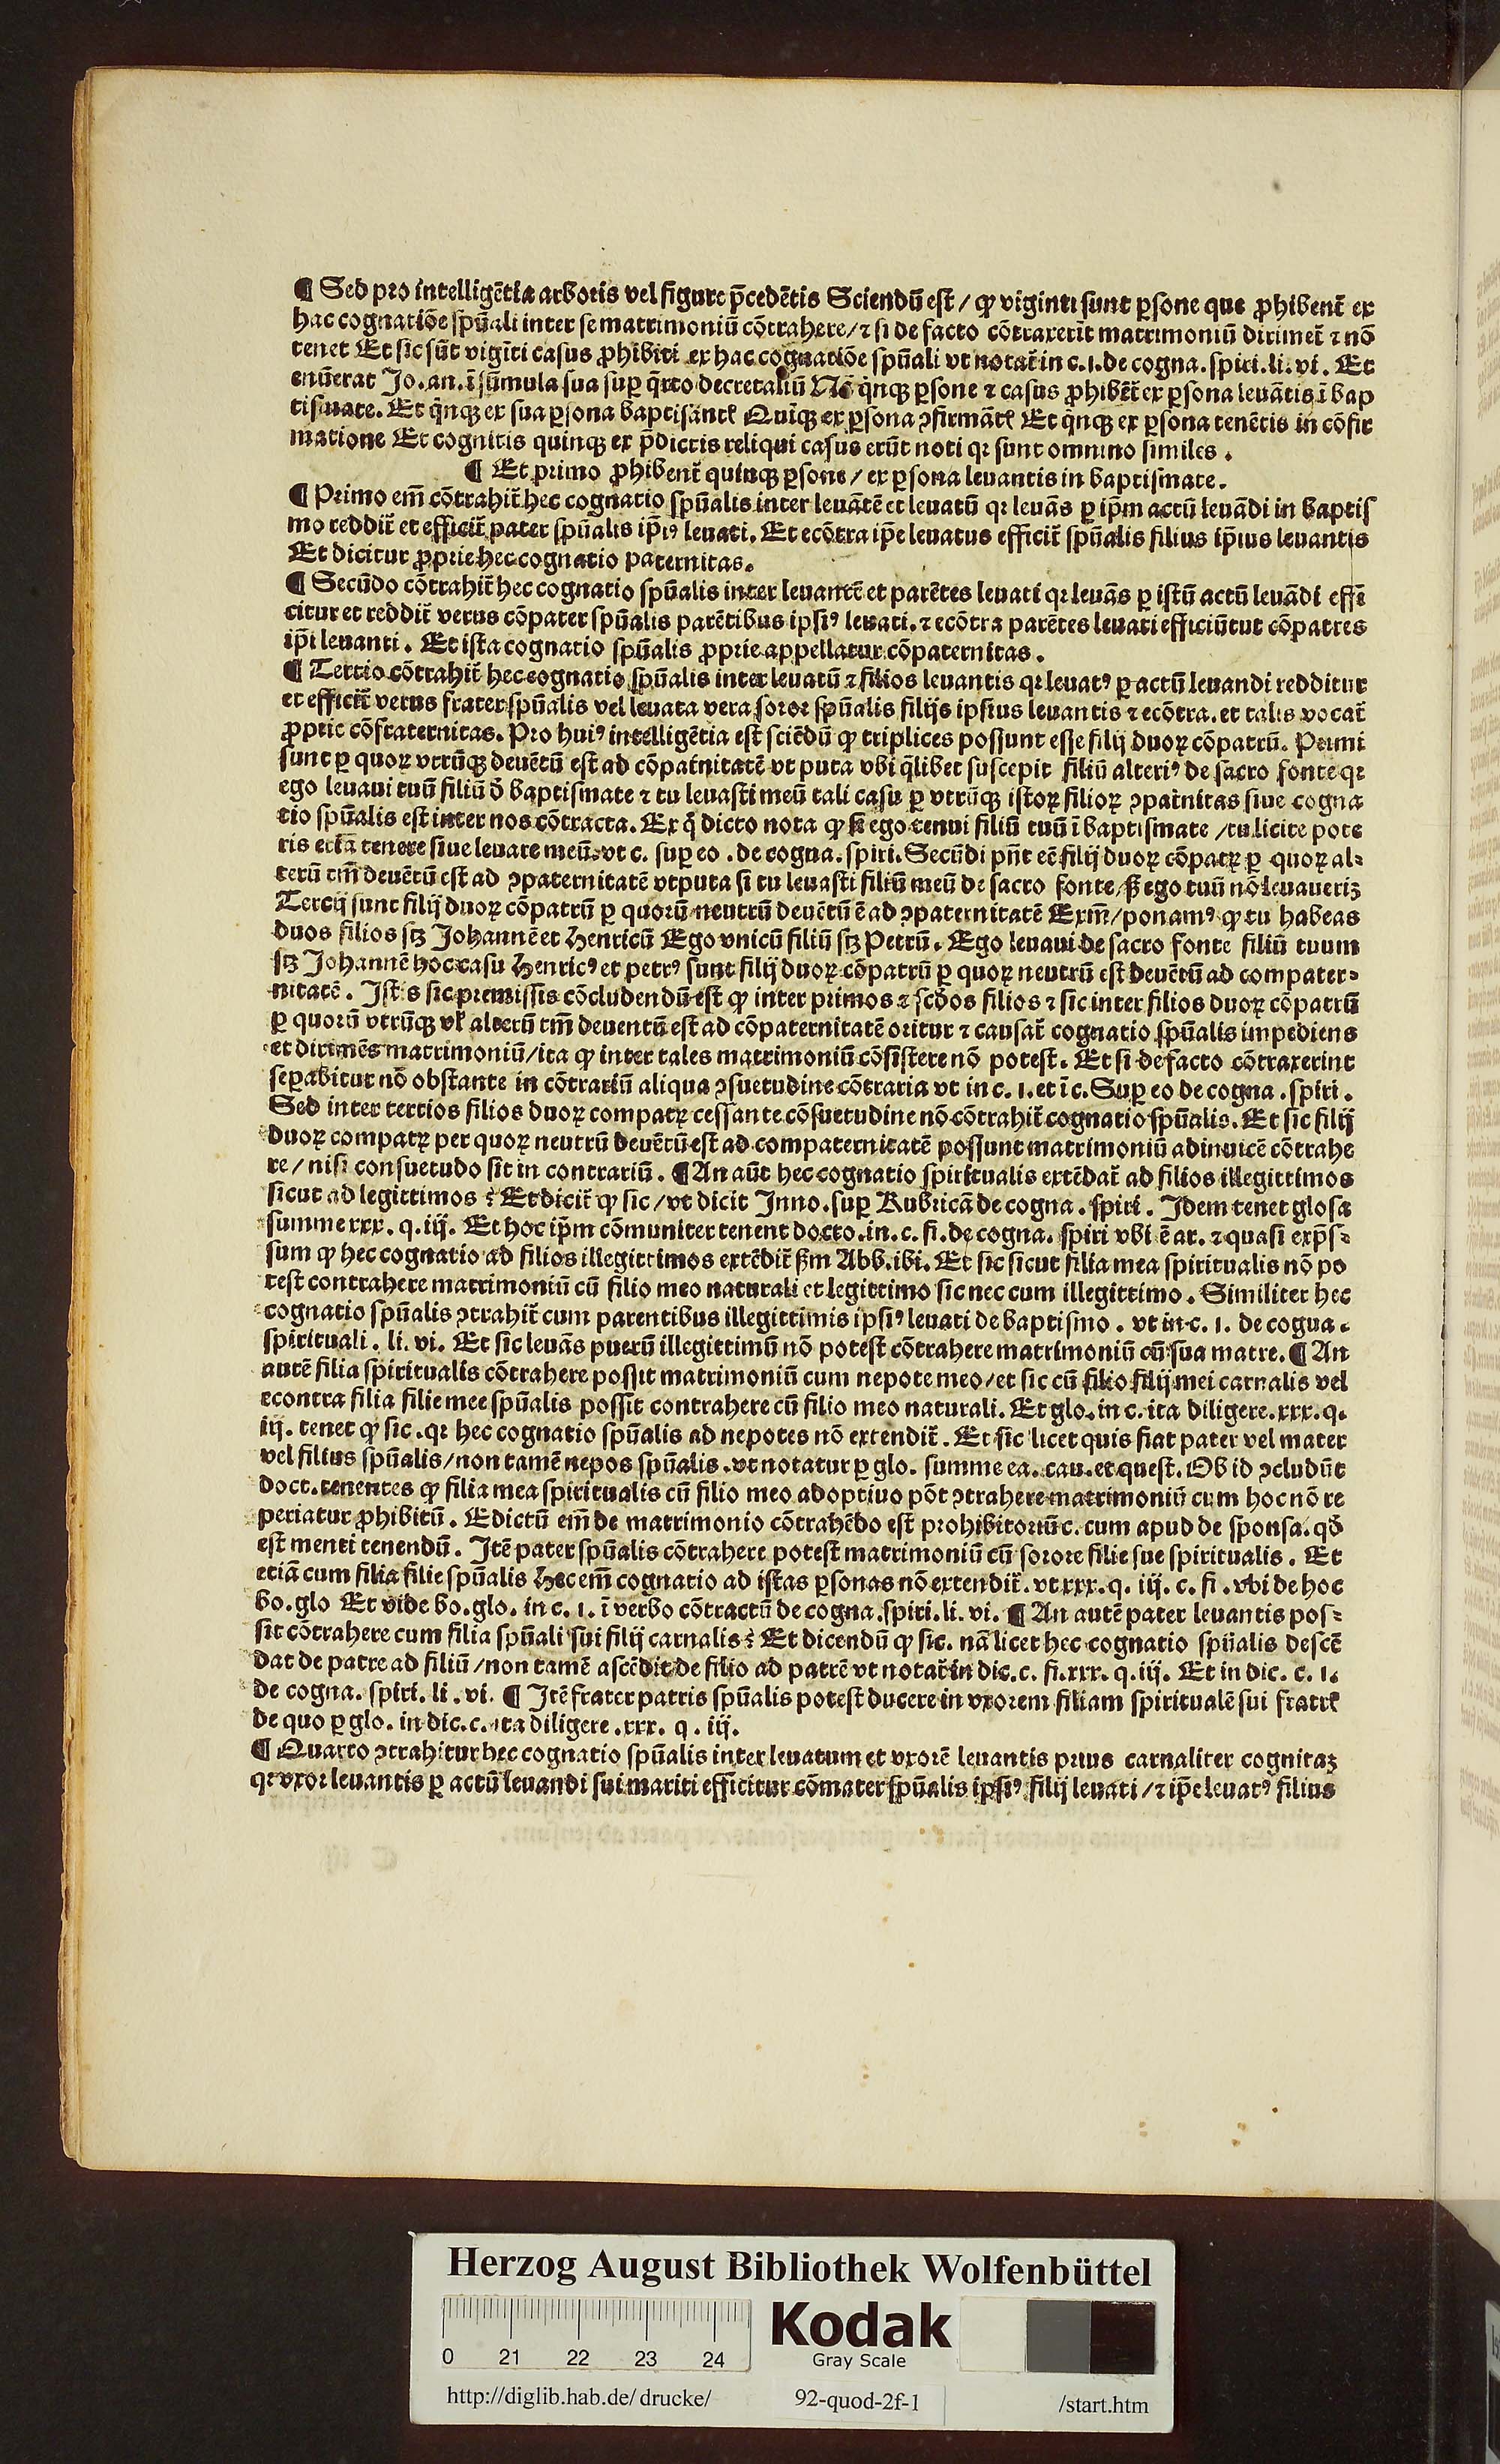 ¶ Sed pro intelligẽtia arboris vel figure p̃cedẽtis Sciendũ est / ꝙ viginti sunt ꝑsone que ꝓhibent̃ ex
hac cognatiõe spũali inter se matrimoniũ cõtrahere / ⁊ si de facto cõtraxerĩt matrimoniũ dirimet̃ ⁊ nõ
tenet Et sic sũt vigĩti casus ꝓhibiti ex hac cognatiõe spũali vt notat̃ in c. i. de cogna. spiri. li. vi. Et
enũerat Jo. an. ĩ sũmula sua suꝑ q̃rto decretaliũ Nã q̃nqꝫ ꝑsone ⁊ casus ꝓhibẽt̃ ex ꝑsona leuãtis ĩ bap
tismate. Et q̃nqꝫ ex sua ꝑsona baptisãntꝭ Quĩqꝫ ex ꝑsona ꝯfirmãtꝭ Et q̃nqꝫ ex ꝑsona tenẽtis in cõfir
matione Et cognitis quinqꝫ ex p̃dictis reliqui casus erũt noti qꝛ sunt omnino similes .
¶ Et primo ꝓhibent̃ quinqꝫ ꝑsone / ex ꝑsona leuantis in baptismate.
¶ Primo em̃ cõtrahit̃ hec cognatio spũalis inter leuãtẽ et leuatũ qꝛ leuãs ꝑ ip̃m actũ leuãdi in baptis
mo reddit̃ et efficit̃ pater spũalis ip̃iꝰ leuati. Et ecõtra ip̃e leuatus efficit̃ spũalis filius ip̃ius leuantis
Et dicitur ꝓprie hec cognatio paternitas.
¶ Secũdo cõtrahit̃ hec cognatio spũalis inter leuantẽ et parẽtes leuati qꝛ leuãs ꝑ istũ actũ leuãdi effi
citur et reddit̃ verus cõpater spũalis parẽtibus ipsiꝰ leuati. ⁊ ecõtra parẽtes leuati efficiũtur cõpatres
ip̃i leuanti . Et ista cognatio spũalis ꝓprie appellatur cõpaternitas .
¶ Tertio cõtrahit̃ hec cognatio spũalis inter leuatũ ⁊ filios leuantis qꝛ leuatꝰ ꝑ actũ leuandi redditur
et efficit̃ verus frater spũalis vel leuata vera soror spũalis filijs ipsius leuantis ⁊ ecõtra. et talis vocat̃
ꝓprie cõfraternitas. Pro huiꝰ intelligẽtia est sciẽdũ ꝙ triplices possunt esse filij duoꝝ cõpatrũ. Primi
sunt ꝑ quoꝝ vtrũqꝫ deuẽtũ est ad cõpat̃nitatẽ vt puta vbi q̃libet suscepit filiũ alteriꝰ de sacro fonte qꝛ
ego leuaui tuũ filiũ d̃ baptismate ⁊ tu leuasti meũ tali casu ꝑ vtrũqꝫ istoꝝ filioꝝ ꝯpat̃nitas siue cogna
tio spũalis est inter nos cõtracta. Ex q̃ dicto nota ꝙ si ego tenui filiũ tuũ ĩ baptismate / tu licite pote
ris etiã tenere siue leuare meũ. vt c. suꝑ eo . de cogna. spiri. Secũdi pñt eẽ filij duoꝝ cõpatꝝ ꝑ quoꝝ al-
terũ tm̃ deuẽtũ est ad ꝯpaternitatẽ vtputa si tu leuasti filiũ meũ de sacro fonte / sꝫ ego tuũ nõ leuauerĩ
Tercij sunt filij duoꝝ cõpatrũ ꝑ quorũ neutrũ deuẽtũ ẽ ad ꝯpaternitatẽ Exm̃ / ponamꝰ ꝙ tu habeas
duos filios sꝫ Johannẽ et Henricũ Ego vnicũ filiũ sꝫ Petrũ. Ego leuaui de sacro fonte filiũ tuum
sꝫ Johannẽ hoc casu Henricꝰ et petrꝰ sunt filij duoꝝ cõpatrũ ꝑ quoꝝ neutrũ est deuẽtũ ad compater-
nitatẽ . Istis sic premissis cõcludendũ est ꝙ inter primos ⁊ scd̃os filios ⁊ sic inter filios duoꝝ cõpatrũ
ꝑ quorũ vtrũqꝫ vł alterũ tm̃ deuentũ est ad cõpaternitatẽ oritur ⁊ causat̃ cognatio spũalis impediens
et dirimẽs matrimoniũ / ita ꝙ inter tales matrimoniũ cõsistere nõ potest. Et si de facto cõtraxerint
seꝑabitur nõ obstante in cõtrariũ aliqua ꝯsuetudine cõtraria vt in c. i. et ĩ c. Suꝑ eo de cogna . spiri .
Sed inter tertios filios duoꝝ compatꝝ cessante cõsuetudine nõ cõtrahit̃ cognatio spũalis. Et sic filij
duoꝝ compatꝝ per quoꝝ neutrũ deuẽtũ est ad compaternitatẽ possunt matrimoniũ adinuicẽ cõtrahe
re / nisi consuetudo sit in contrariũ . ¶ An aũt hec cognatio spiritualis extẽdat̃ ad filios illegittimos
sicut ad legittimos ? Et dicit̃ ꝙ sic / vt dicit Inno. suꝑ Rubricã de cogna . spiri . Idem tenet glosa
summe xxx. q. iij. Et hoc ip̃m cõmuniter tenent docto. in. c. fi. de cogna. spiri vbi ẽ ar. ⁊ quasi exp̃s-
sum ꝙ hec cognatio ad filios illegittimos extẽdit̃ ẞm Abb. ibi. Et sic sicut filia mea spiritualis nõ po
test contrahere matrimoniũ cũ filio meo naturali et legittimo sic nec cum illegittimo . Similiter hec
cognatio spũalis ꝯtrahit̃ cum parentibus illegittimis ipsiꝰ leuati de baptismo . vt in c. i. de cogna .
spirituali . li. vi. Et sic leuãs puerũ illegittimũ nõ potest cõtrahere matrimoniũ cũ sua matre. ¶ An
autẽ filia spiritualis cõtrahere possit matrimoniũ cum nepote meo / et sic cũ filio filij mei carnalis vel
econtra filia filie mee spũalis possit contrahere cũ filio meo naturali. Et glo. in c. ita diligere. xxx. q.
iij. tenet ꝙ sic . qꝛ hec cognatio spũalis ad nepotes nõ extendit̃. Et sic licet quis fiat pater vel mater
vel filius spũalis / non tamẽ nepos spũalis . vt notatur ꝑ glo. summe ea. cau. et quest. Ob id ꝯcludũt
doct. tenentes ꝙ filia mea spiritualis cũ filio meo adoptiuo põt ꝯtrahere matrimoniũ cum hoc nõ re
periatur ꝓhibitũ . Edictũ em̃ de matrimonio cõtrahẽdo est prohibitoriũ c. cum apud de sponsa. qd̃
est menti tenendũ . Itẽ pater spũalis cõtrahere potest matrimoniũ cũ sorore filie sue spiritualis . Et
etiã cum filia filie spũalis Hec em̃ cognatio ad istas ꝑsonas nõ extendit̃. vt xxx. q. iij. c. fi . vbi de hoc
bo. glo Et vide bo. glo. in c. i. ĩ verbo cõtractũ de cogna. spiri. li. vi. ¶ An autẽ pater leuantis pos-
sit cõtrahere cum filia spũali sui filij carnalis ? Et dicendũ ꝙ sic. nã licet hec cognatio spũalis descẽ
dat de patre ad filiũ / non tamẽ ascẽdit de filio ad patrẽ vt notat̃ in dic. c. fi. xxx. q. iij. Et in dic. c. i.
de cogna. spiri. li . vi. ¶ Itẽ frater patris spũalis potest ducere in vxorem filiam spiritualẽ sui fratrꝭ
de quo ꝑ glo. in dic. c. ita diligere . xxx. q . iij.
¶ Quarto ꝯtrahitur hec cognatio spũalis inter leuatum et vxorẽ leuantis prius carnaliter cognitaꝫ
qꝛ vxor leuantis ꝑ actũ leuandi sui mariti efficitur cõmater spũalis ipsiꝰ filij leuati / ⁊ ip̃e leuatꝰ filius
Herzog August Bibliothek Wolfenbüttel
0 21 22 23 24
Kodak
Gray Scale
http://diglib.hab.de/drucke/ 92-quod-2f-1 /start.htm